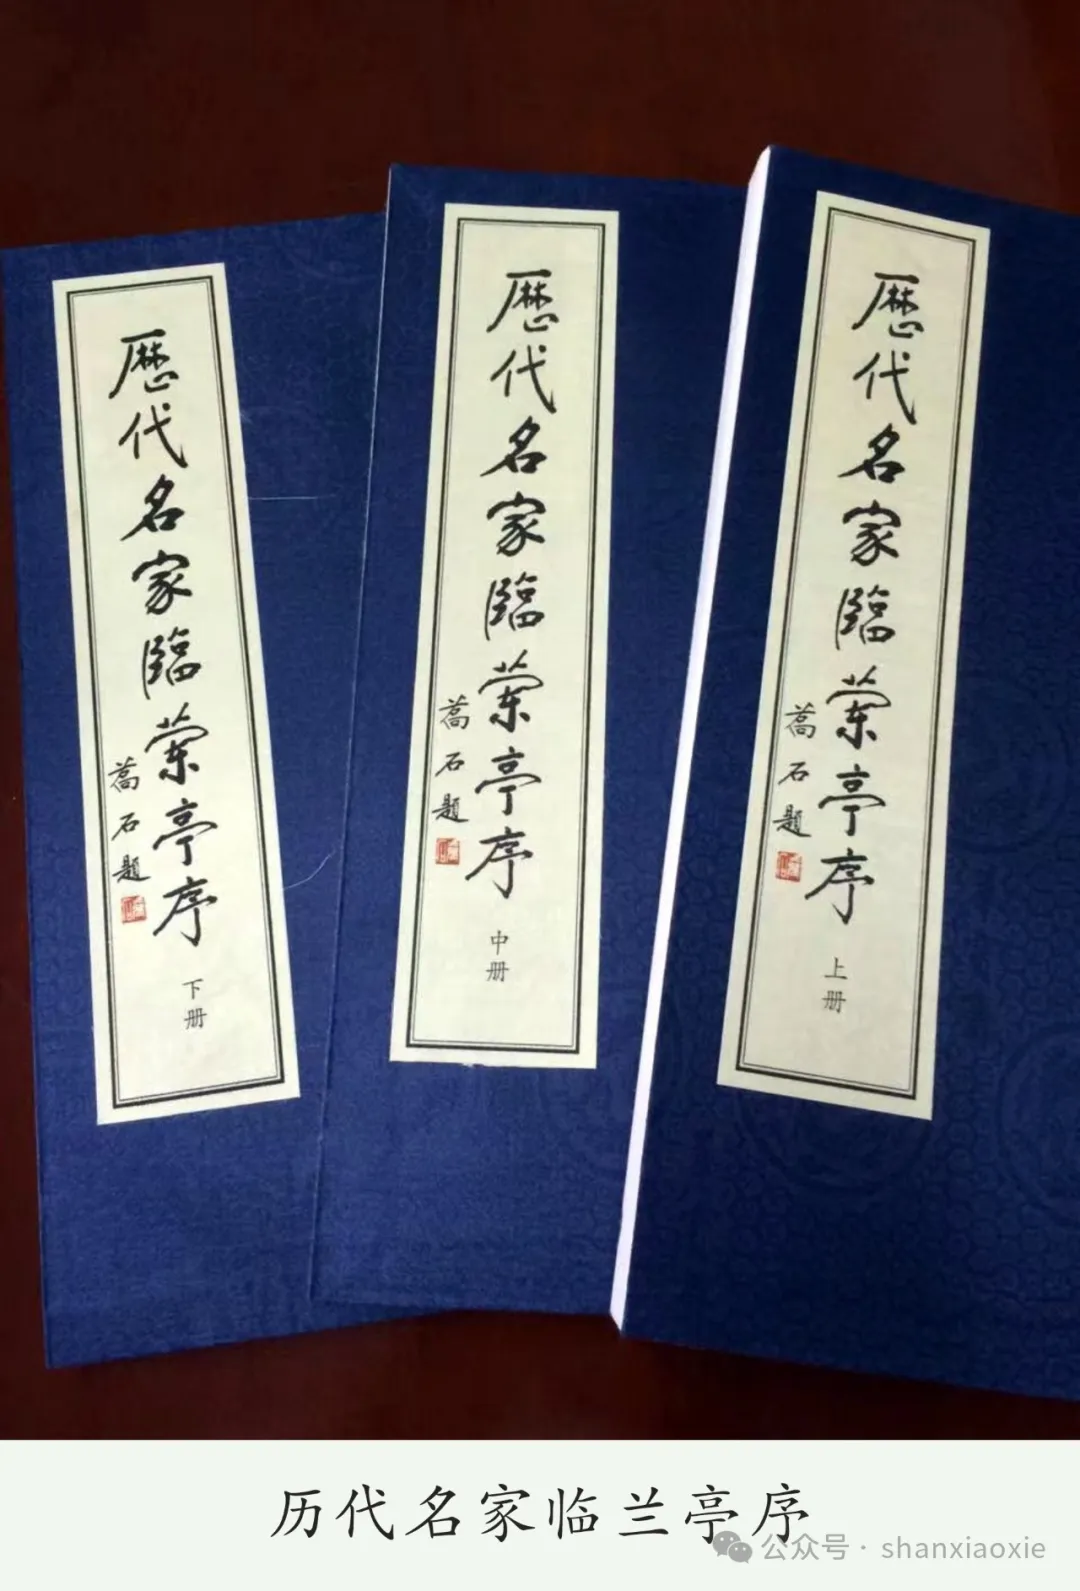 歷代名家臨蘭亭序
蒿石題
下册
歷代名家臨蘭亭序
蒿石題
中册
歷代名家臨蘭亭序
蒿石題
上册
历代名家临兰亭序
公众号· shanxiaoxie